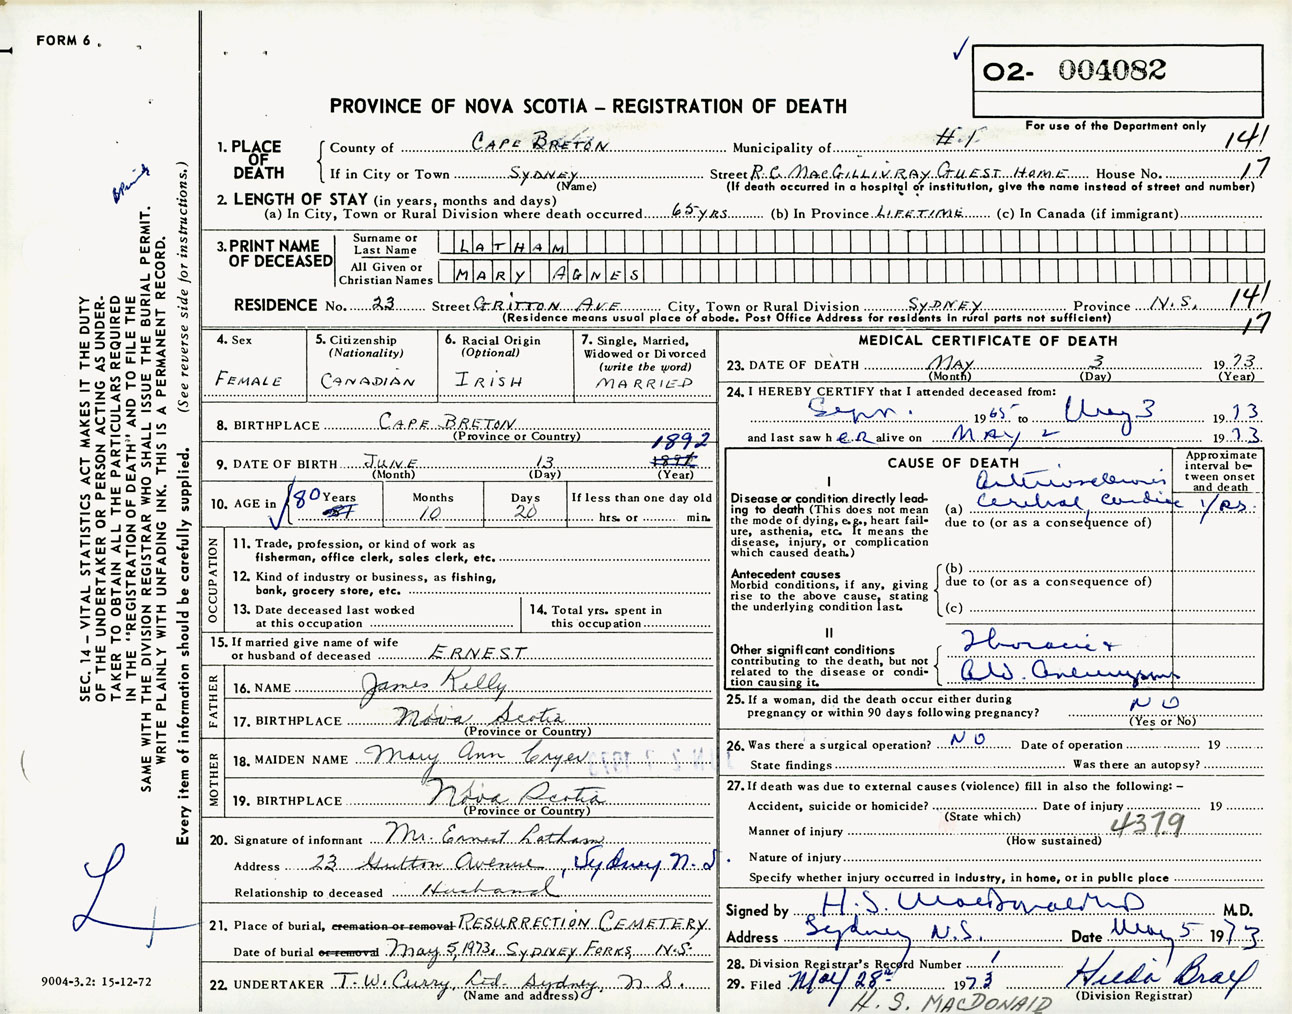 FORM 6.
O2- 004082
PROVINCE OF NOVA SCOTIA – REGISTRATION OF DEATH
For use of the Department only
1. PLACE OF DEATH
County of CAPE BRETON Municipality of 141
If in City or Town SYDNEY (Name) Street R.C. MACGILLIVRAY GUEST HOME House No. 17
(If death occurred in a hospital or institution, give the name instead of street and number)
2. LENGTH OF STAY (in years, months and days)
(a) In City, Town or Rural Division where death occurred 65 YRS (b) In Province LIFETIME (c) In Canada (if immigrant)
3. PRINT NAME OF DECEASED
Surname or Last Name LATHAM
All Given or Christian Names MARY AGNES
RESIDENCE No. 23 Street GRITTON AVE City, Town or Rural Division SYDNEY Province N.S. 141
(Residence means usual place of abode. Post Office Address for residents in rural parts not sufficient) 17
4. Sex
FEMALE
5. Citizenship (Nationality)
CANADIAN
6. Racial Origin (Optional)
IRISH
7. Single, Married, Widowed or Divorced (write the word)
MARRIED
8. BIRTHPLACE CAPE BRETON
(Province or Country)
1892
9. DATE OF BIRTH JUNE 13 1891
(Month) (Day) (Year)
10. AGE in 80 Years 81 Months 10 Days 20 If less than one day old
hrs. or min.
OCCUPATION
11. Trade, profession, or kind of work as fisherman, office clerk, sales clerk, etc.
12. Kind of industry or business, as fishing, bank, grocery store, etc.
13. Date deceased last worked at this occupation
14. Total yrs. spent in this occupation
15. If married give name of wife or husband of deceased ERNEST
FATHER
16. NAME James Kelly
17. BIRTHPLACE Nova Scotia
(Province or Country)
MOTHER
18. MAIDEN NAME Mary Ann Cryer
19. BIRTHPLACE Nova Scotia
(Province or Country)
20. Signature of informant Mr. Ernest Latham
Address 23 Gritton Avenue, Sydney N.S.
Relationship to deceased Husband
21. Place of burial, cremation or removal RESURRECTION CEMETERY
Date of burial or removal May 5, 1973, SYDNEY FORKS, N.S.
22. UNDERTAKER T.W. Curry, Ltd. Sydney, N.S.
(Name and address)
MEDICAL CERTIFICATE OF DEATH
23. DATE OF DEATH MAY 3 1973
(Month) (Day) (Year)
24. I HEREBY CERTIFY that I attended deceased from:
Sept. 1965 to May 3 1973
and last saw her alive on MAY 2 1973
CAUSE OF DEATH
Approximate interval between onset and death
I
Disease or condition directly leading to death (This does not mean the mode of dying, e.g., heart failure, asthenia, etc. It means the disease, injury, or complication which caused death.)
Arteriosclerosis
(a) Cerebral, Cardiac yrs.
due to (or as a consequence of)
Antecedent causes
Morbid conditions, if any, giving rise to the above cause, stating the underlying condition last.
(b)
due to (or as a consequence of)
(c)
II
Other significant conditions contributing to the death, but not related to the disease or condition causing it.
Thoracic &
Abd. Aneurysms
25. If a woman, did the death occur either during pregnancy or within 90 days following pregnancy? NO
(Yes or No)
26. Was there a surgical operation? NO Date of operation 19
State findings Was there an autopsy?
27. If death was due to external causes (violence) fill in also the following: –
Accident, suicide or homicide? Date of injury 19
(State which)
Manner of injury 4379
(How sustained)
Nature of injury
Specify whether injury occurred in industry, in home, or in public place
Signed by H.S. MacDonald MD M.D.
Address Sydney N.S. Date May 5 1973
28. Division Registrar's Record Number 1
29. Filed May 28th 1973 Hilda Bray
(Division Registrar)
H. S. MACDONALD
SEC. 14 – VITAL STATISTICS ACT MAKES IT THE DUTY
OF THE UNDERTAKER OR PERSON ACTING AS UNDER-
TAKER TO OBTAIN ALL THE PARTICULARS REQUIRED
IN THE "REGISTRATION OF DEATH" AND TO FILE THE
SAME WITH THE DIVISION REGISTRAR WHO SHALL ISSUE THE BURIAL PERMIT.
WRITE PLAINLY WITH UNFADING INK. THIS IS A PERMANENT RECORD.
Every item of information should be carefully supplied. (See reverse side for instructions.)
9004-3.2: 15-12-72